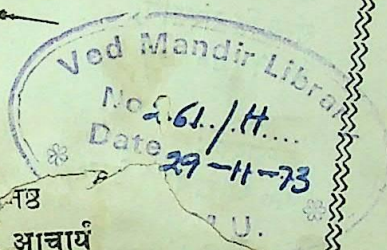 Ved Mandir Library
No. 261./.H....
Date 29-11-73
U.
आचार्य